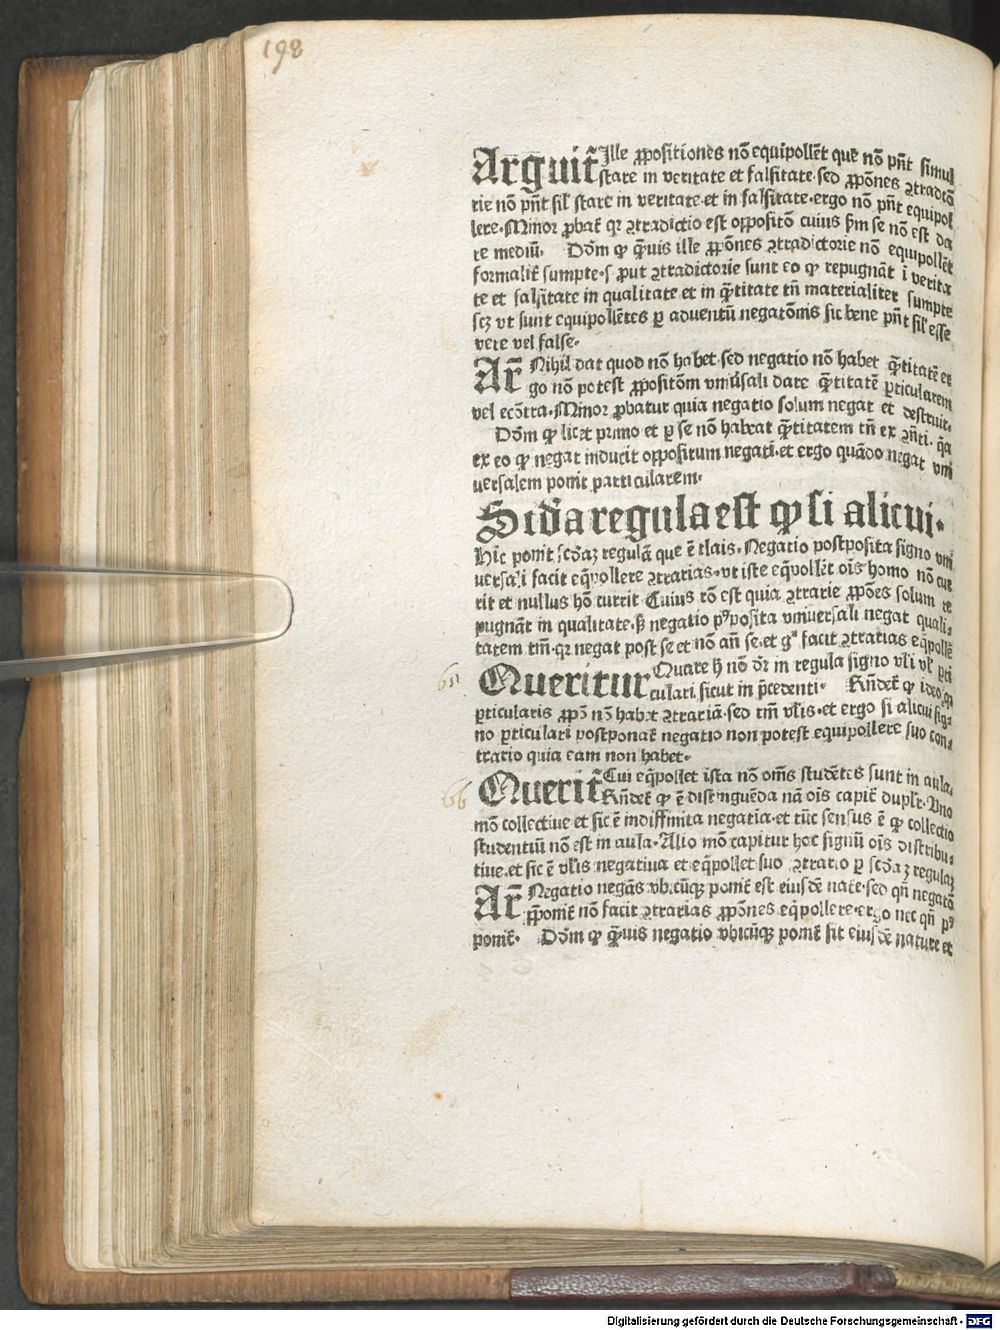 198
Arguit̃ Ille ꝓpositiones nõ equipollẽt quẽ nõ pñt simul
stare in veritate et falsitate·sed ꝓpões ꝯtradcõ
rie nõ pñt sil̃ stare in veritate et in falsitate·ergo nõ pñt equipol
lere·Minor ꝓbat̃ qꝛ ꝯtradictio est oppositõ cuius ꝑm se nõ est da
re mediũ· Dõm ꝙ q̃uis ille ꝓpões ꝯtradictorie nõ equipollẽt
formalit̃ sumpte·s ꝓut ꝯtradictorie sunt eo ꝙ repugnãt ĩ verita
te et falsitate in qualitate et in q̃titate tñ materialiter sumpte
scꝫ vt sunt equipollẽtes ꝑ aduentũ negatõnis sic bene pñt sil̃ esse
vere vel false·
Ar̃ Nihil dat quod nõ habet·sed negatio nõ habet q̃titatẽ er
go nõ potest ꝓpositõm vniũsali dare q̃titatẽ ꝑticularem
vel ecõtra·Minor ꝓbatur quia negatio solum negat et destruit·
Dõm ꝙ licet primo et ꝑ se nõ habeat q̃titatem tñ ex ꝯñti· q̃a
ex eo ꝙ negat inducit oppositum negati·et ergo quãdo negat vni
uersalem ponit particularem·
Scd̃a regula est ꝙ si alicui·
Hic ponit scd̃aꝫ regulã que ẽ tlais·Negatio postposita signo vni
uersali facit eq̃pollere ꝯtrarias·vt iste eq̃pollẽt oĩs homo nõ cur
rit et nullus hõ currit Cuius rõ est quia ꝯtrarie ꝓpões solum re
pugnãt in qualitate·ß negatio p⁹posita vniuersali negat quali⸗
tatem tm̃·qꝛ negat post se et nõ añ se·et gͦ facit ꝯtrarias eq̃pollẽ
65
Queritur Quare h̃ nõ dr̃ in regula signo vl̃i vl̃ ꝑti
culari sicut in p̃cedenti· Rñdet̃ ꝙ ideo·qꝛ
ꝑticularis ꝓpõ nõ habet ꝯtrariã·sed tm̃ vl̃is·et ergo si alicui sig⸗
no ꝑticulari postponat̃ negatio non potest equipollere suo con⸗
trario quia eam non habet·
66
Querit̃ Cui eq̃pollet ista nõ om̃s studẽtes sunt in aula·
Rñdet̃ ꝙ ẽ distinguẽda nã oĩs capit̃ duplr̃·Uno
mõ collectiue et sic ẽ indiffinita negatia·et tũc sensus ẽ ꝙ collectio
studentiũ nõ est in aula·Alio mõ capitur hoc signũ oĩs distribu⸗
tiue·et sic ẽ vl̃is negatiua et eq̃pollet suo ꝯtrario ꝑ scd̃aꝫ regulaꝫ
Ar̃ Negatio negãs vbicũqꝫ ponit̃ est eiusdẽ nate·sed qñ negatõ
p̃ponit̃ nõ facit ꝯtrarias ꝓpões eq̃pollere·ergo nec qñ p⁹
ponit̃· Dõm ꝙ q̃uis negatio vbicũqꝫ ponit̃ sit eiusdẽ nature et
Digitalisierung gefördert durch die Deutsche Forschungsgemeinschaft - DFG